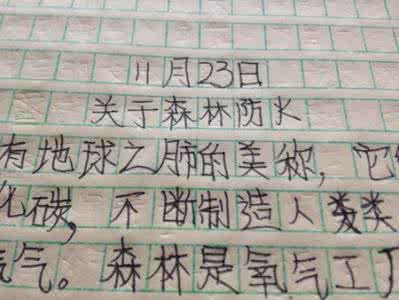 11月23日
关于森林防火
有地球之肺的美称，它
化碳，不断制造人类
气。森林是氧气工厂